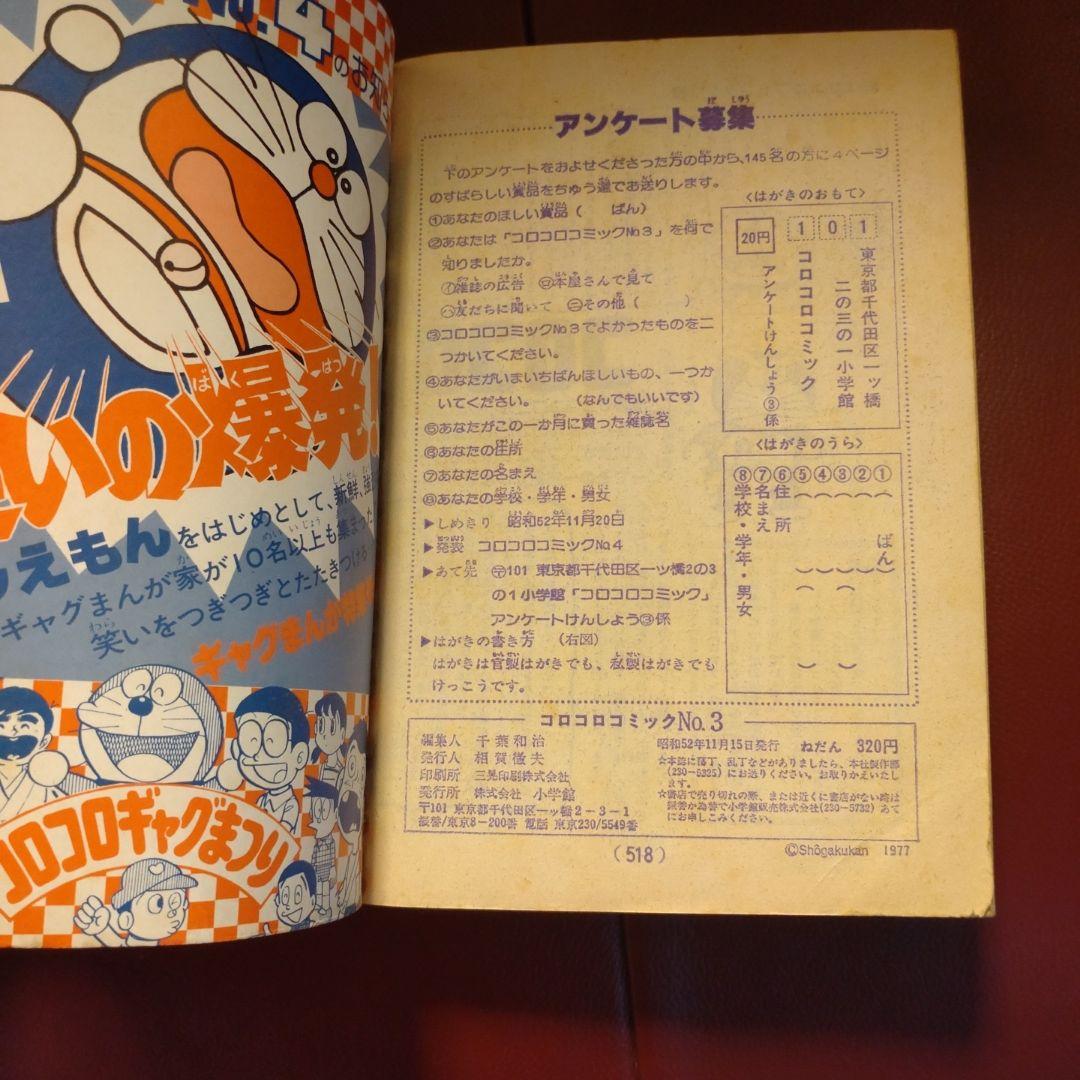 No.4のお知
いの爆発!
えもんをはじめとして、新鮮、強
ギャグまんが家が10名以上も集まった
笑いをつぎつぎとたたきつける
ギャグまんが
コロコロギャグまつり
アンケート募集
下のアンケートをおよせくださった方の中から、145名の方に4ページ
のすばらしい賞品をちゅう選でお送りします。
①あなたのほしい賞品( ばん)
②あなたは「コロコロコミックNo3」を何で
知りましたか。
㋑雑誌の広告 ㋺本屋さんで見て
㋩友だちに聞いて ㋥その他( )
③コロコロコミックNo3でよかったものを二
つかいてください。
④あなたがいまいちばんほしいもの、一つか
いてください。 (なんでもいいです)
⑤あなたがこの一か月に買った雑誌名
⑥あなたの住所
⑦あなたの名まえ
⑧あなたの学校・学年・男女
▶しめきり 昭和52年11月20日
▶発表 コロコロコミックNo4
▶あて先 〒101 東京都千代田区一ツ橋2の3
の1小学館「コロコロコミック」
アンケートけんしょう③係
▶はがきの書き方 (右図)
はがきは官製はがきでも、私製はがきでも
けっこうです。
〈はがきのおもて〉
20円
101
東京都千代田区一ッ橋
二の三の一小学館
コロコロコミック
アンケートけんしょう③係
〈はがきのうら〉
①( ばん)
②( )
③( )( )
④( )
⑤( )
⑥住所
⑦名まえ
⑧学校・学年・男女
コロコロコミックNo.3
編集人 千葉和治
発行人 相賀徹夫
印刷所 三晃印刷株式会社
発行所 株式会社 小学館
〒101 東京都千代田区一ッ橋2-3-1
振替/東京8-200番 電話 東京230/5549番
昭和52年11月15日発行 ねだん 320円
☆本誌に落丁、乱丁などがありましたら、本社製作部
(230-5325)にお送りください。お取りかえいたし
ます。
☆書店で売り切れの際、または近くに書店がない時は
振替か為替で小学館販売株式会社(230-5732)あて
にお申しこみください。
(518)
©Shōgakukan 1977